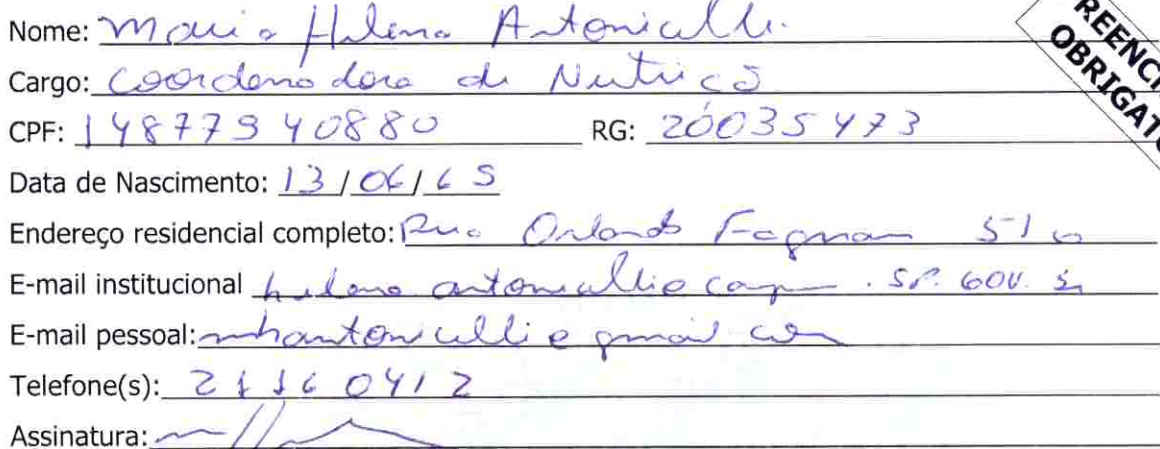 Nome: Maria Helena Antonicelli.
PREENCH
OBRIGATÓ
Cargo: Coordenadora de Nutrição
CPF: 14877940880 RG: 20035473
Data de Nascimento: 13/06/65
Endereço residencial completo: Rua Orlando Fagnani 510
E-mail institucional helena antonicelli@ . SP. GOV.
E-mail pessoal: mhantonicelli@gmail com
Telefone(s): 21160412
Assinatura: